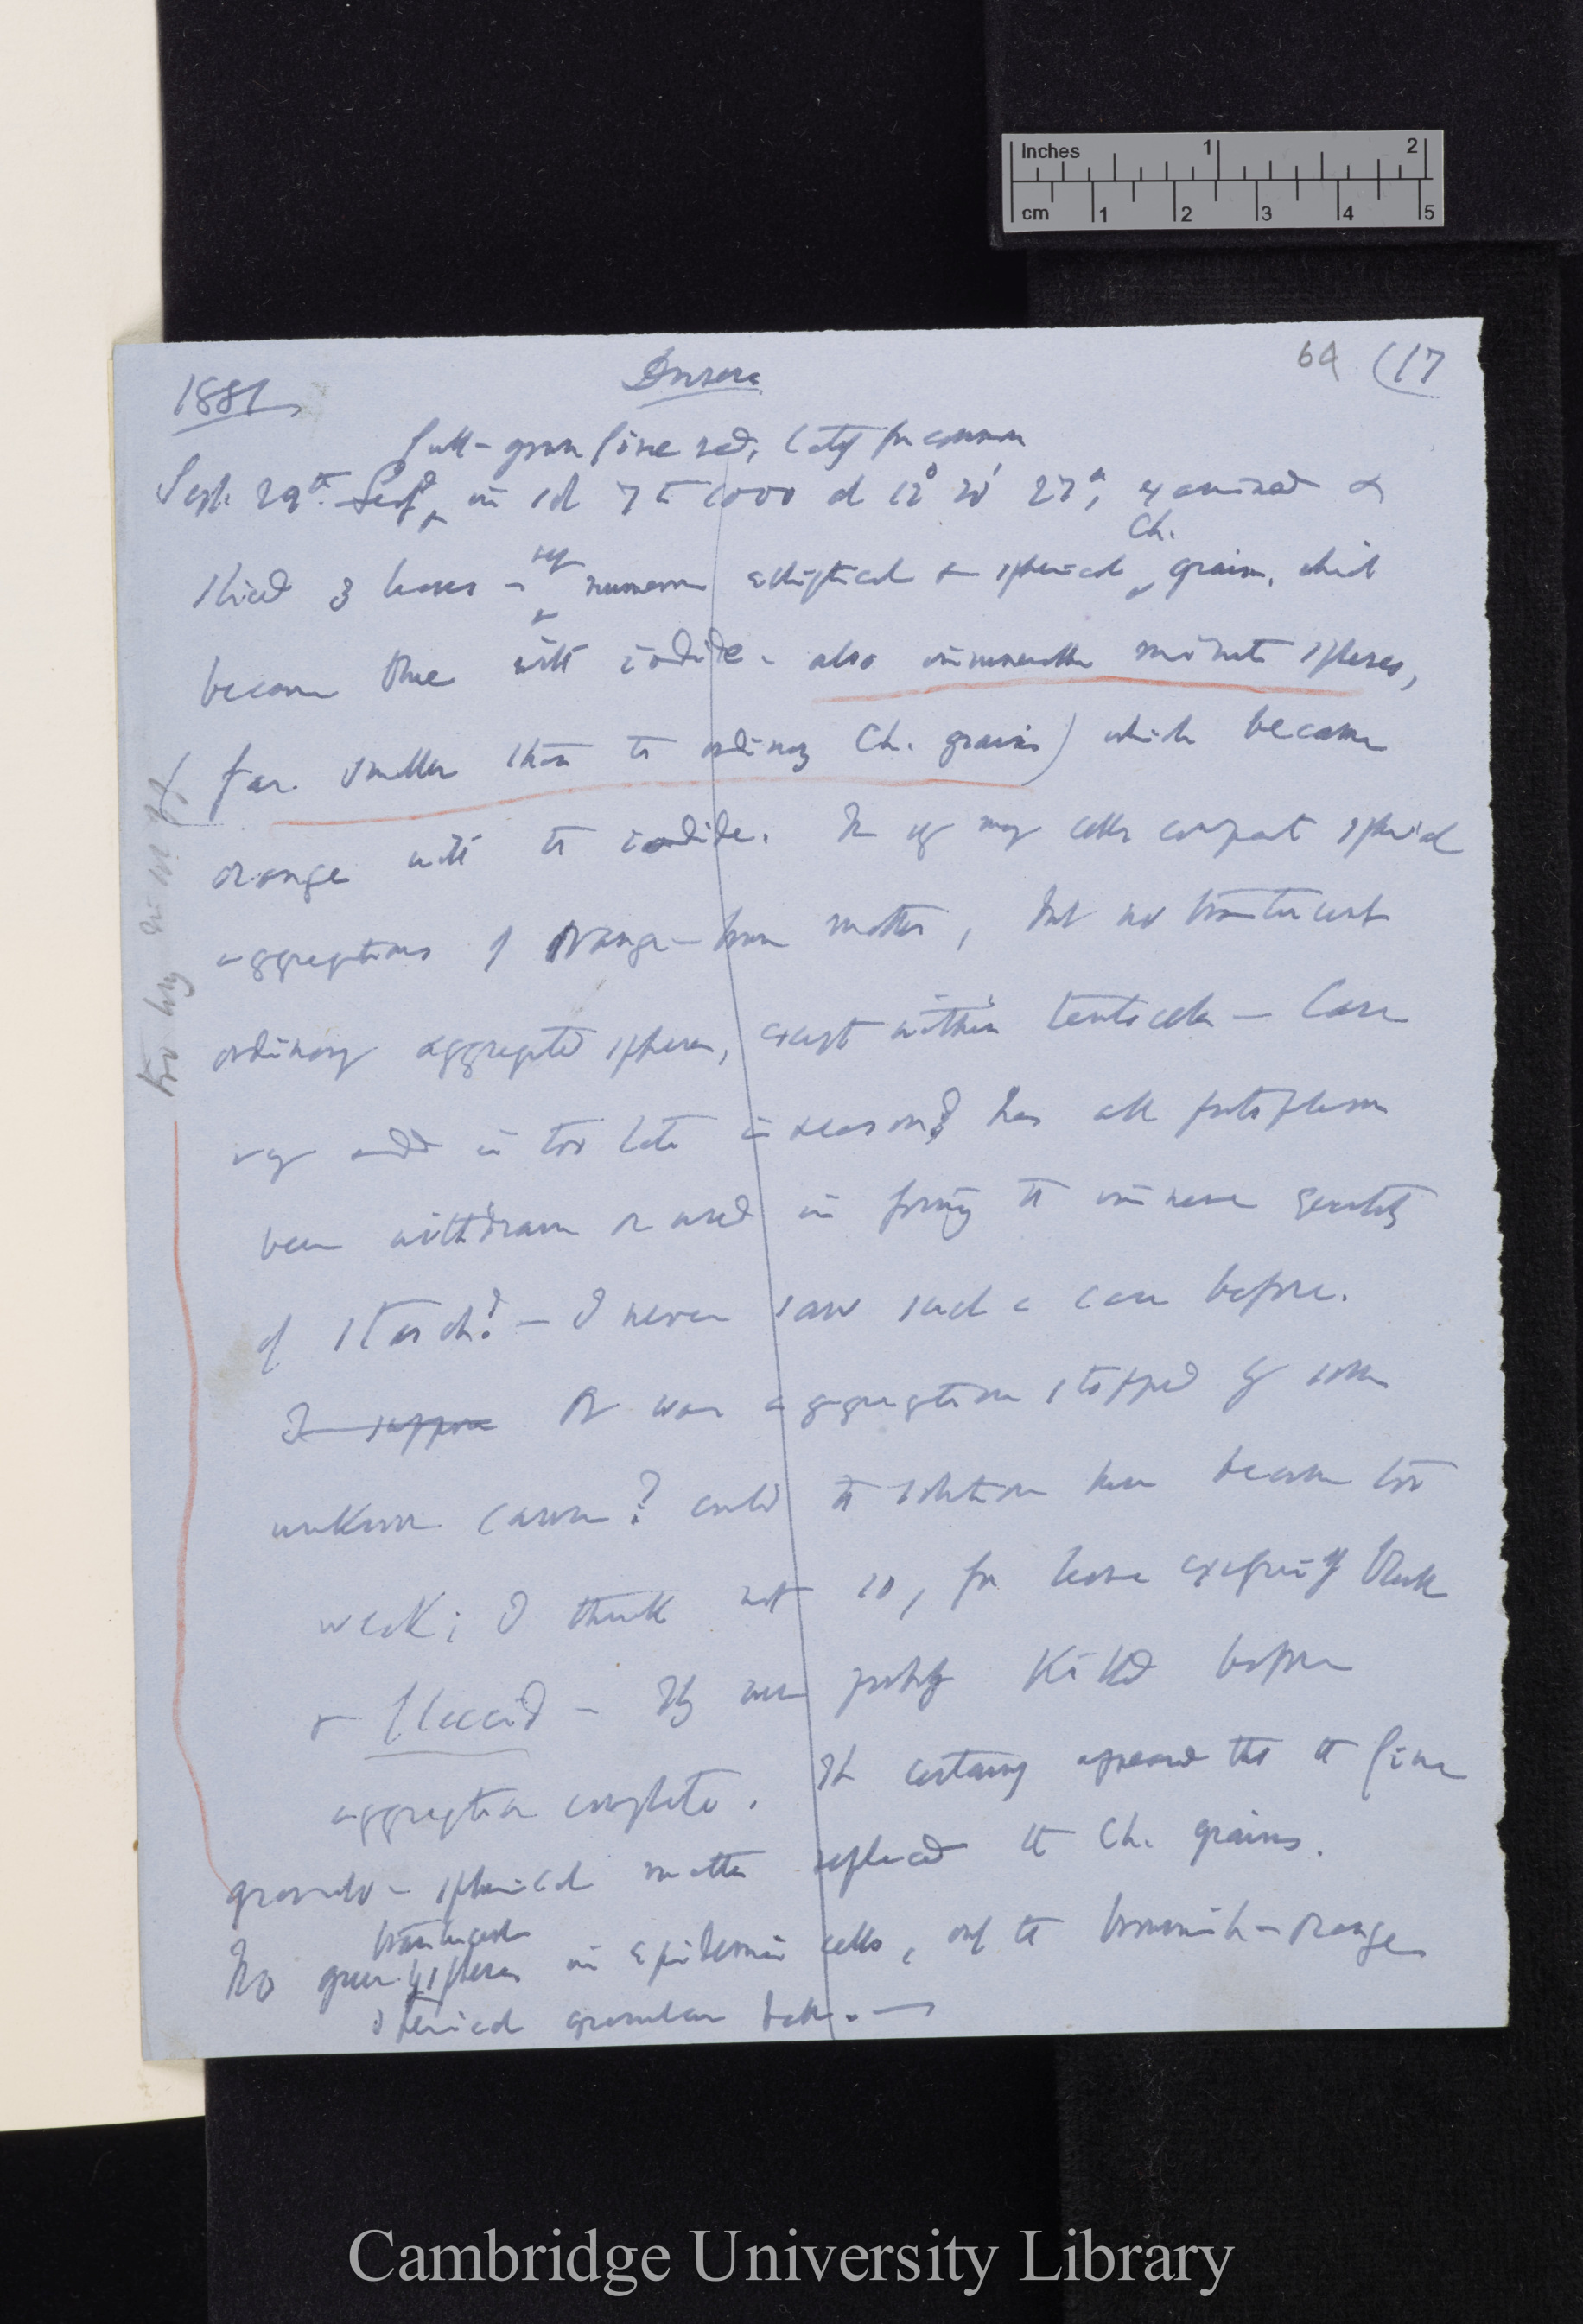 Inches 1 2
cm 1 2 3 4 5
64 (17
1881 Drosera
full-grown fine red,
Sept. 29th in sol 7 to 1000 at 12° 20' 27th, examined &
sliced 3 leaves numerous elliptical & spherical Ch. grains, which
became blue with iodide - also innumerable minute spheres,
(far smaller than the ordinary Ch. grains) which became
orange with the iodide. In very many cells compact spherical
aggregations of orange-brown matter, but no translucent
ordinary aggregated spheres, except within tentacles - Case
very odd is too late in season? has all protoplasm
been withdrawn or used in forming the immense quantity
of starch? - I never saw such a case before.
I suppose Or was aggregation stopped by some
unknown cause? could the solution have become too
weak; I think not so, for leaves black
& flaccid - They were probably killed before
aggregation completed. It certainly appeared that the fine
granulo-spherical matter replaced the Ch. grains.
No green translucent spheres in epidermic cells, only the brownish-orange
spherical granular balls. —
too long in
Cambridge University Library